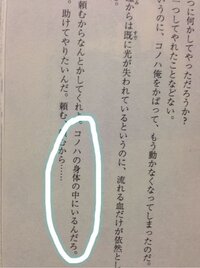 つに何かしてやっただろうか？
一つしてやれたことなどない。
いうのに、コノハ俺をかばって、もう動かなくなってしまったのだ。
からは既に光が失われているというのに、流れる血だけが依然とし
頼むからなんとかしてくれ。コノハの身体の中にいるんだろ。
助けてやりたいんだ。頼む、　から……